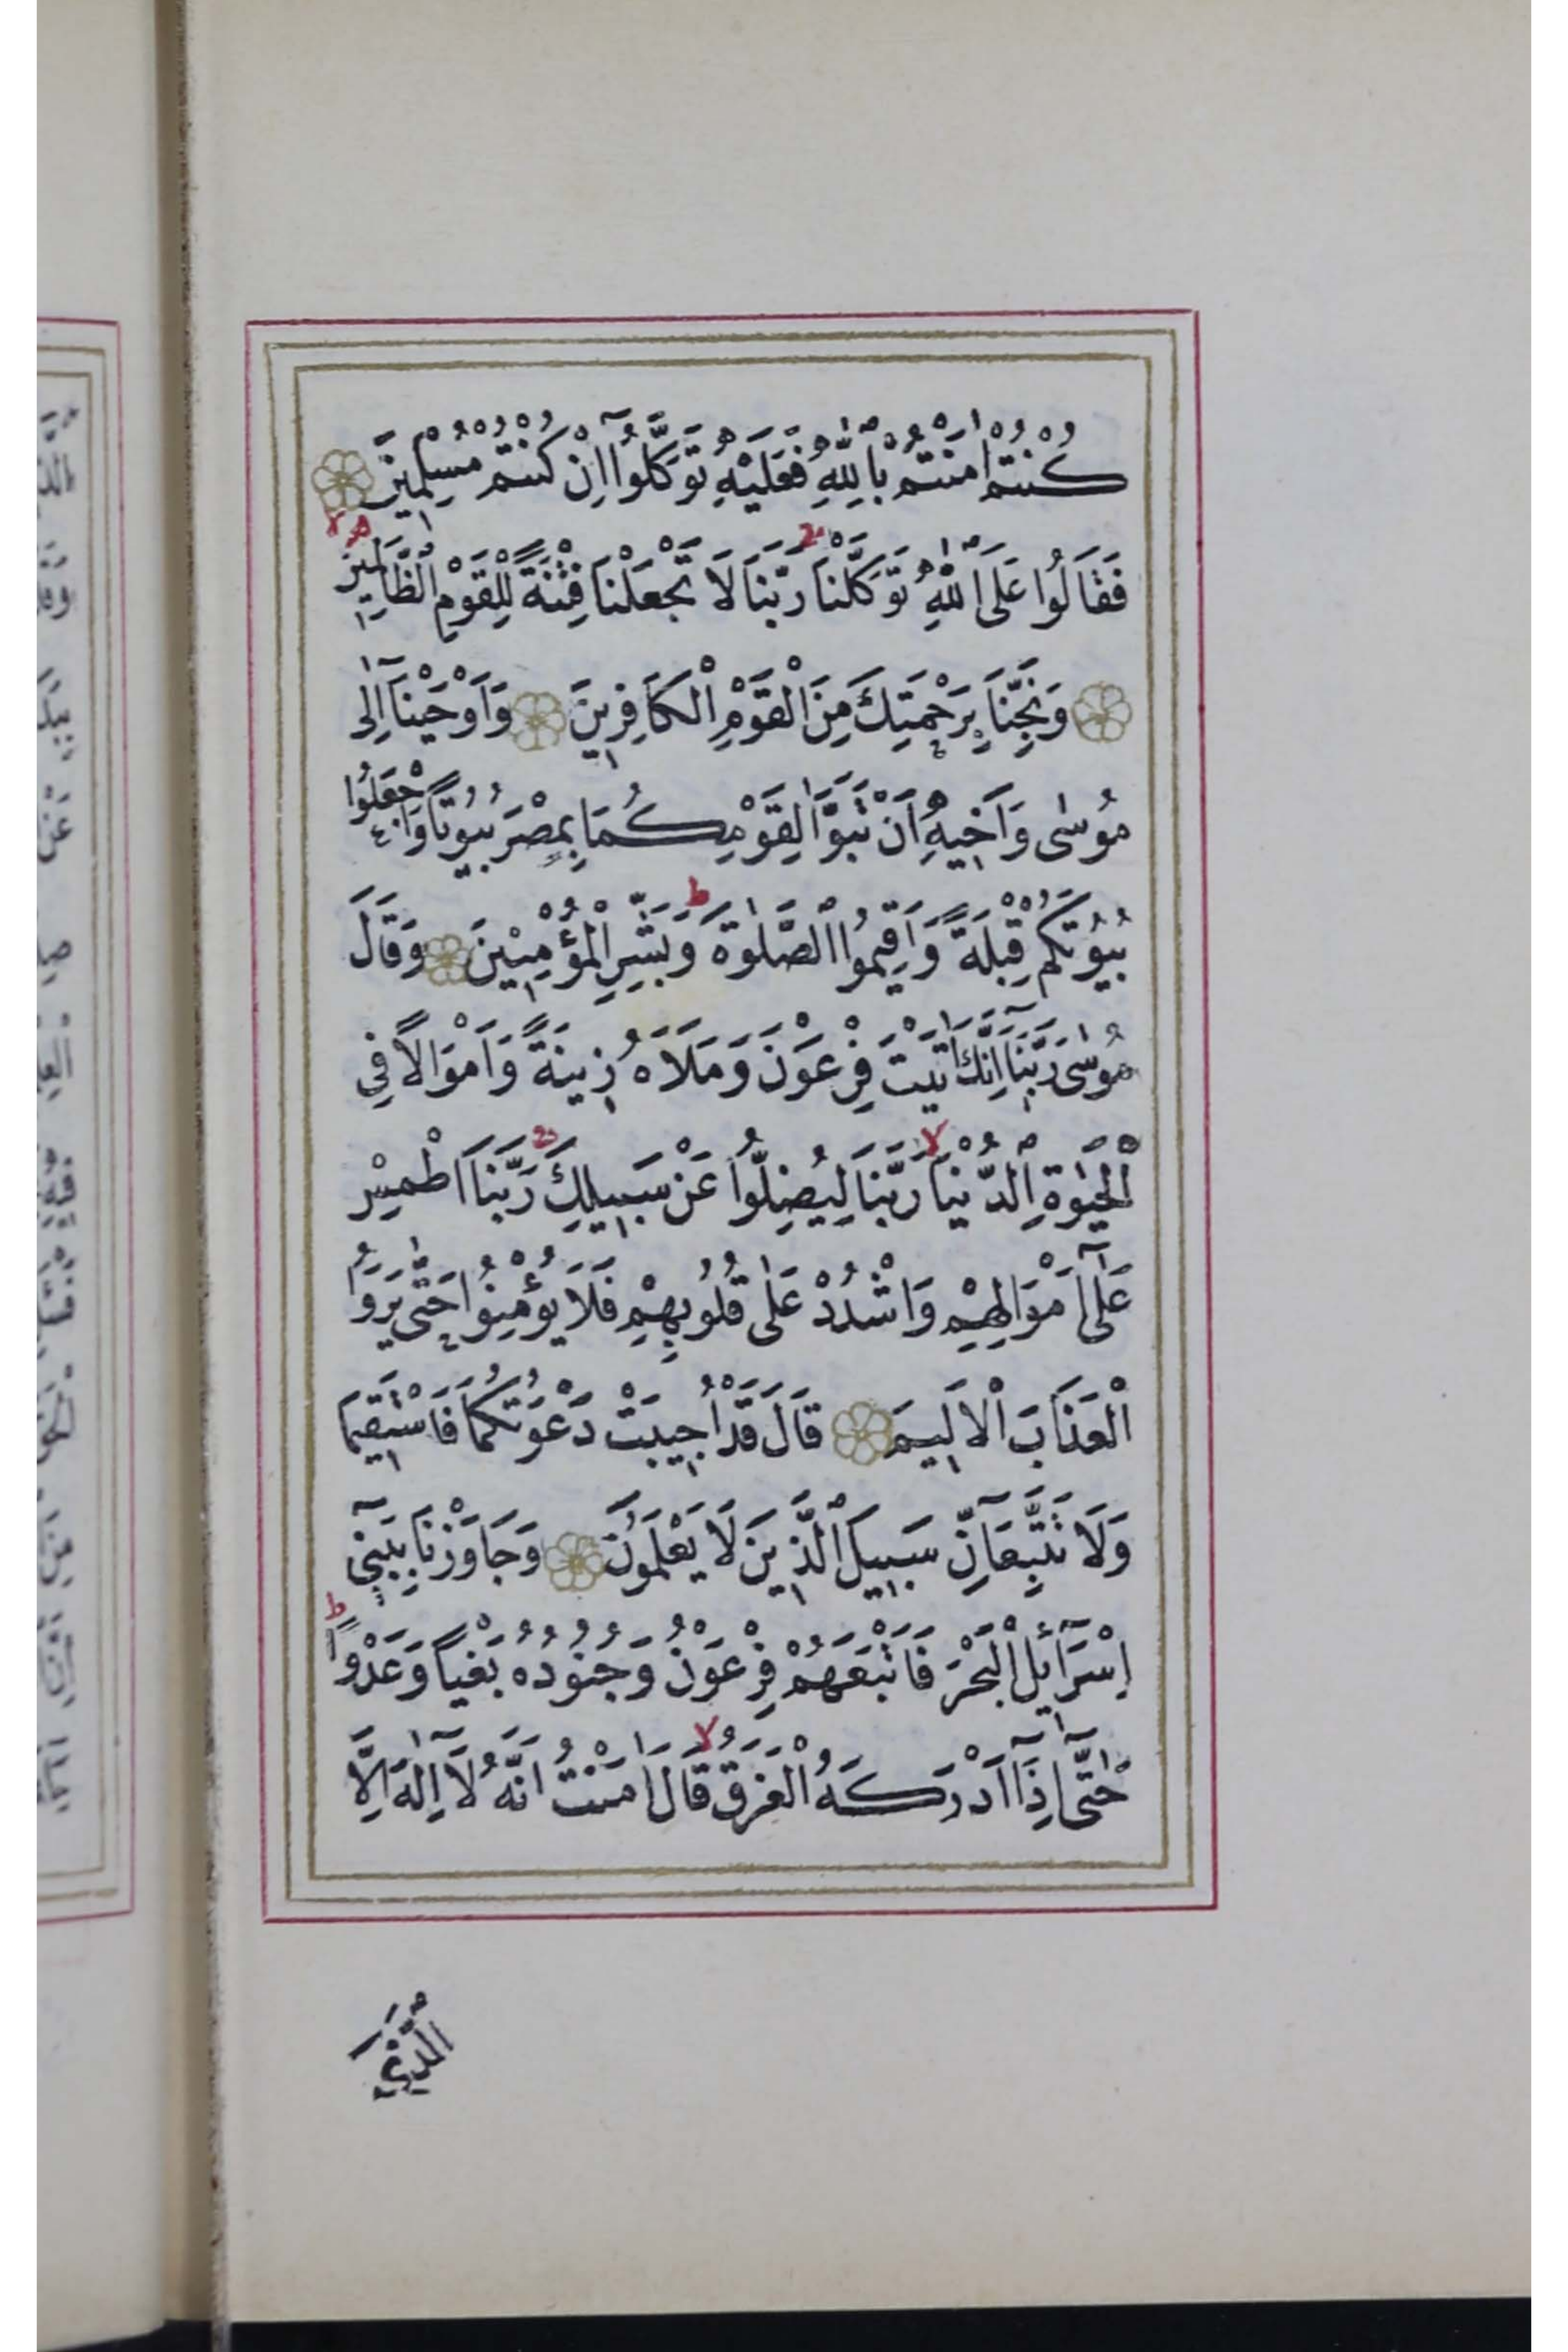 كُنْتُمْ اٰمَنْتُمْ بِاللّٰهِ فَعَلَيْهِ تَوَكَّلُوٓا اِنْ كُنْتُمْ مُسْلِمِينَ
فَقَالُوا عَلَى اللّٰهِ تَوَكَّلْنَا رَبَّنَا لَا تَجْعَلْنَا فِتْنَةً لِلْقَوْمِ الظَّالِمِينَ
وَنَجِّنَا بِرَحْمَتِكَ مِنَ الْقَوْمِ الْكَافِرِينَ وَاَوْحَيْنَٓا اِلٰى
مُوسٰى وَاَخِيهِ اَنْ تَبَوَّاٰ لِقَوْمِكُمَا بِمِصْرَ بُيُوتًا وَاجْعَلُوا
بُيُوتَكُمْ قِبْلَةً وَاَقِيمُوا الصَّلٰوةَ ط وَبَشِّرِ الْمُؤْمِنِينَ وَقَالَ
مُوسٰى رَبَّنَٓا اِنَّكَ اٰتَيْتَ فِرْعَوْنَ وَمَلَاَهُ زِينَةً وَاَمْوَالًا فِي
الْحَيٰوةِ الدُّنْيَا لا رَبَّنَا لِيُضِلُّوا عَنْ سَبِيلِكَ رَبَّنَا اطْمِسْ
عَلٰٓى اَمْوَالِهِمْ وَاشْدُدْ عَلٰى قُلُوبِهِمْ فَلَا يُؤْمِنُوا حَتّٰى يَرَوُا
الْعَذَابَ الْاَلِيمَ قَالَ قَدْ اُجِيبَتْ دَعْوَتُكُمَا فَاسْتَقِيمَا
وَلَا تَتَّبِعَٓانِّ سَبِيلَ الَّذِينَ لَا يَعْلَمُونَ وَجَاوَزْنَا بِبَنِٓي
اِسْرَٓائِلَ الْبَحْرَ فَاَتْبَعَهُمْ فِرْعَوْنُ وَجُنُودُهُ بَغْيًا وَعَدْوًا ط
حَتّٰٓى اِذَٓا اَدْرَكَهُ الْغَرَقُ لا قَالَ اٰمَنْتُ اَنَّهُ لَٓا اِلٰهَ اِلَّا
الَّذِٓي